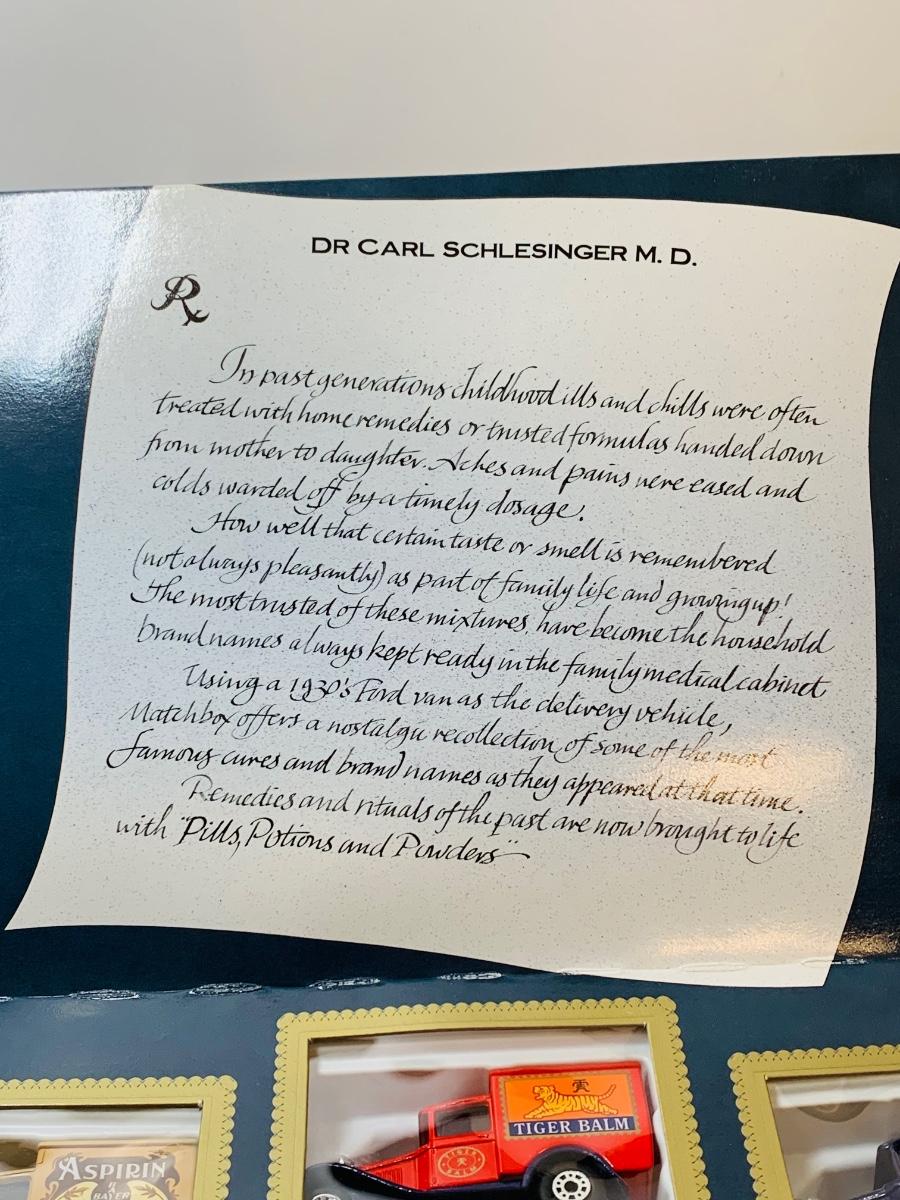 DR CARL SCHLESINGER M. D.
Rx
In past generations childhood ills and chills were often
treated with home remedies or trusted formulas handed down
from mother to daughter. Aches and pains were eased and
colds warded off by a timely dosage.
How well that certain taste or smell is remembered
(not always pleasantly) as part of family life and growing up!
The most trusted of these mixtures, have become the household
brand names always kept ready in the family medical cabinet
Using a 1930's Ford van as the delivery vehicle,
Matchbox offers a nostalgic recollection of some of the most
famous cures and brand names as they appeared at that time.
Remedies and rituals of the past are now brought to life
with "Pills, Potions and Powders"
虎
TIGER BALM
TIGER
BALM
ASPIRIN
BAYER